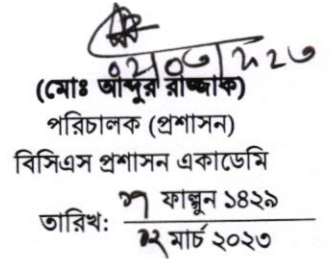 (মোঃ আব্দুর রাজ্জাক)
পরিচালক (প্রশাসন)
বিসিএস প্রশাসন একাডেমি
তারিখ: ১৭ ফাল্গুন ১৪২৯
০২ মার্চ ২০২৩